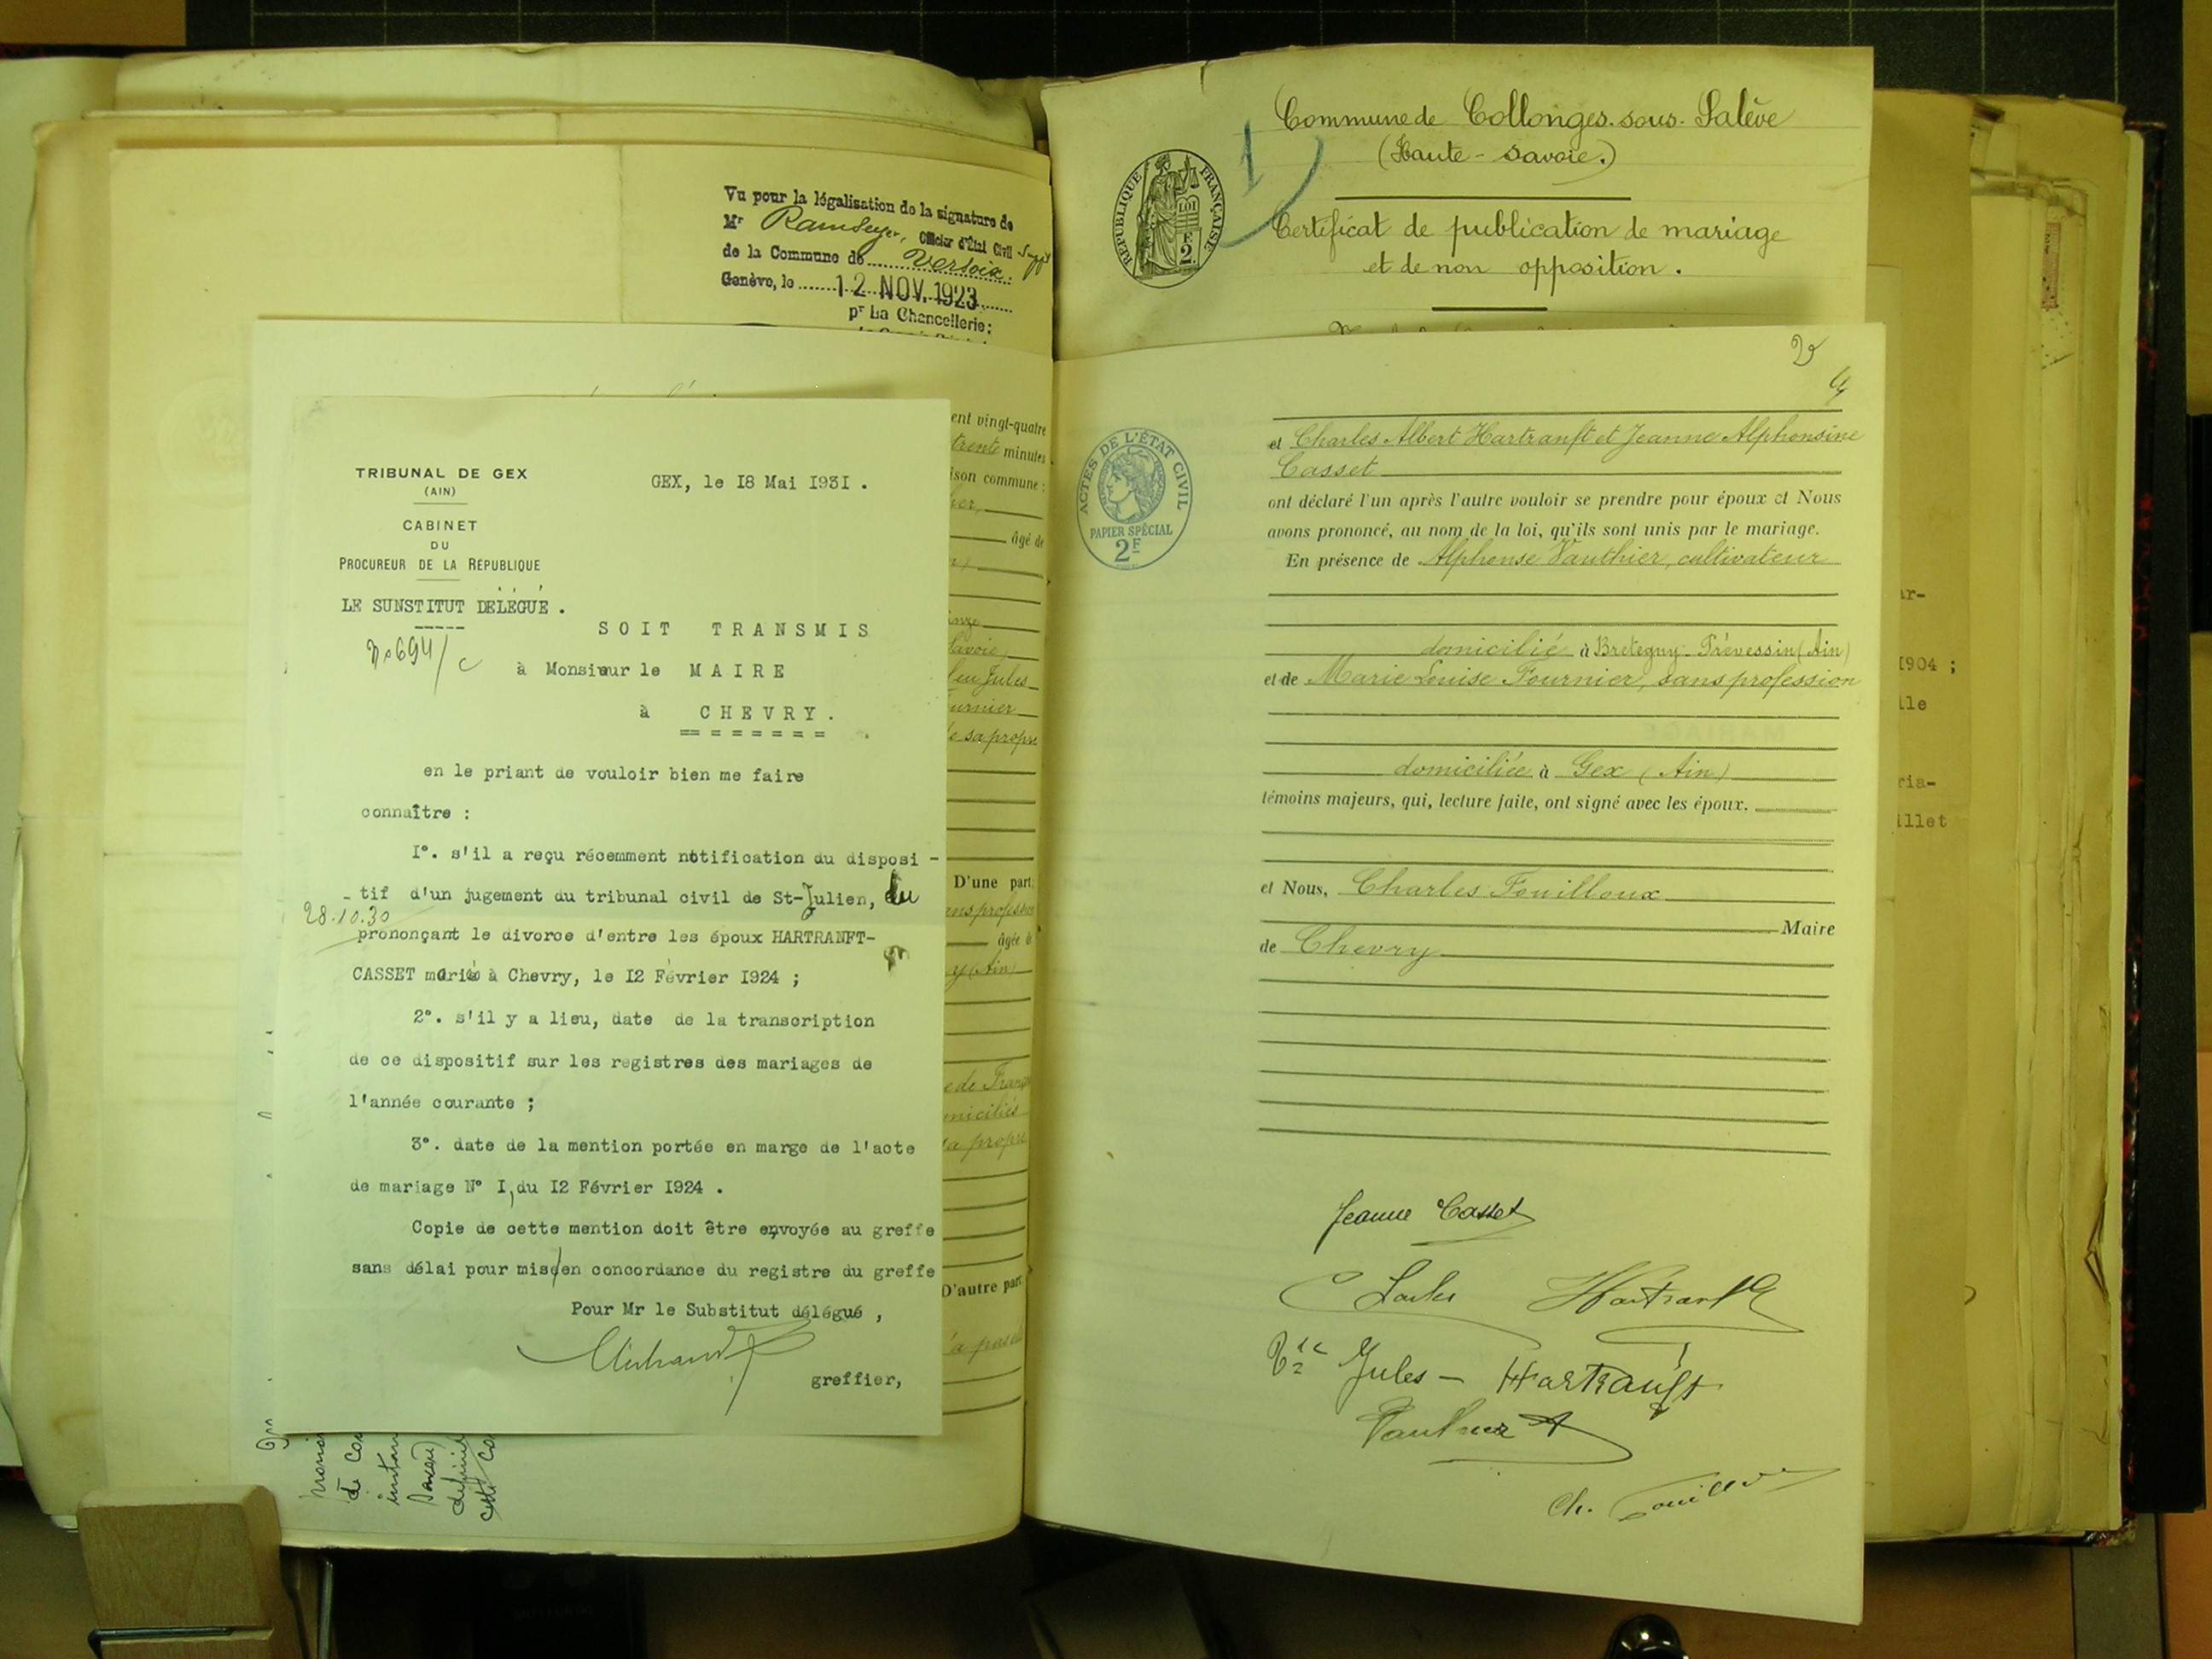 Vu pour la légalisation de la signature de
Mr Ramseyer, Officier d'État Civil Suppt
de la Commune de Versoix.
Genève, le 12 NOV. 1923
pr La Chancellerie:
TRIBUNAL DE GEX
(AIN)
CABINET
DU
PROCUREUR DE LA RÉPUBLIQUE
LE SUNSTITUT DELEGUE .
GEX, le I8 Mai I93I .
No 694/c
SOIT TRANSMIS
à Monsieur le MAIRE
à CHEVRY.
= = = = = = =
en le priant de vouloir bien me faire
connaître :
I°. s'il a reçu récemment notification du disposi -
- tif d'un jugement du tribunal civil de St-Julien, du
28.10.30
prononçant le divorce d'entre les époux HARTRANFT-
CASSET mariés à Chevry, le I2 Février I924 ;
2°. s'il y a lieu, date de la transcription
de ce dispositif sur les registres des mariages de
l'année courante ;
3°. date de la mention portée en marge de l'acte
de mariage N° I, du I2 Février I924 .
Copie de cette mention doit être envoyée au greffe
sans délai pour mise/en concordance du registre du greffe
Pour Mr le Substitut délégué ,
greffier,
ent vingt-quatre
trente minutes
ison commune :
âgé de
Savoie
feu Jules
urnier
de sa propre
D'une part
ans profession
âgée de
y (Ain)
miciliés
sa propre
D'autre part
Commune de Collonges-sous-Salève
(Haute-Savoie.)
1
RÉPUBLIQUE FRANÇAISE
LOI
F
2.
Certificat de publication de mariage
et de non opposition.
2
ACTES DE L'ÉTAT CIVIL
PAPIER SPÉCIAL
2F
et Charles Albert Hartranft et Jeanne Alphonsine
Casset
ont déclaré l'un après l'autre vouloir se prendre pour époux et Nous
avons prononcé, au nom de la loi, qu'ils sont unis par le mariage.
En présence de Alphonse Vauthier, cultivateur
domicilié à Bretegny-Prévessin (Ain)
et de Marie Louise Fournier, sans profession
domiciliée à Gex (Ain)
témoins majeurs, qui, lecture faite, ont signé avec les époux.
et Nous, Charles Fouilloux
Maire
de Chevry
Jeanne Casset
Charles Hartranft
Vve Jules - Hartranft
Vauthier A
Ch. Fouilloux
ar-
I904 ;
lle
ria-
illet